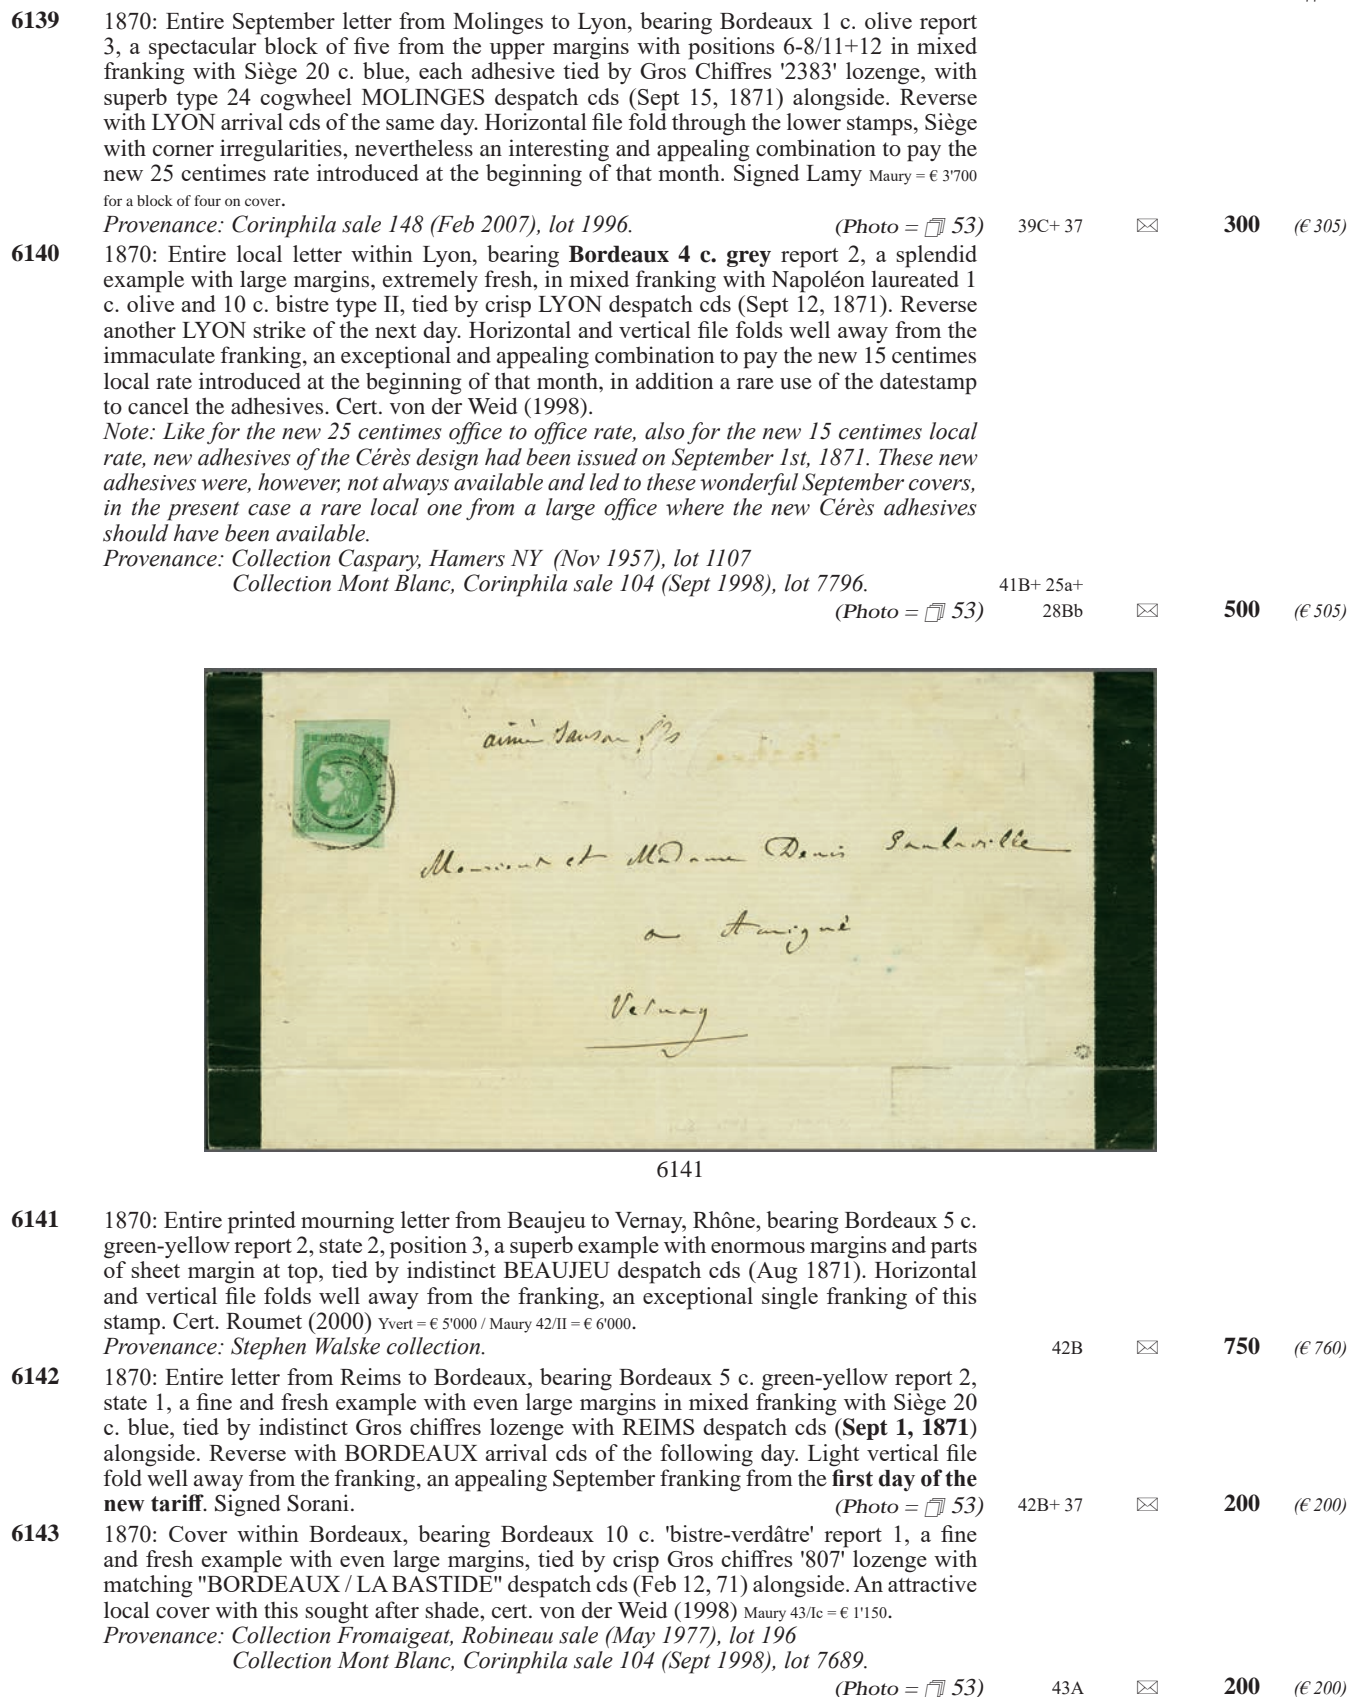 6139 1870: Entire September letter from Molinges to Lyon, bearing Bordeaux 1 c. olive report
3, a spectacular block of five from the upper margins with positions 6-8/11+12 in mixed
franking with Siège 20 c. blue, each adhesive tied by Gros Chiffres '2383' lozenge, with
superb type 24 cogwheel MOLINGES despatch cds (Sept 15, 1871) alongside. Reverse
with LYON arrival cds of the same day. Horizontal file fold through the lower stamps, Siège
with corner irregularities, nevertheless an interesting and appealing combination to pay the
new 25 centimes rate introduced at the beginning of that month. Signed Lamy Maury = € 3'700
for a block of four on cover.
Provenance: Corinphila sale 148 (Feb 2007), lot 1996. (Photo = 53) 39C+ 37 300 (€ 305)
6140 1870: Entire local letter within Lyon, bearing Bordeaux 4 c. grey report 2, a splendid
example with large margins, extremely fresh, in mixed franking with Napoléon laureated 1
c. olive and 10 c. bistre type II, tied by crisp LYON despatch cds (Sept 12, 1871). Reverse
another LYON strike of the next day. Horizontal and vertical file folds well away from the
immaculate franking, an exceptional and appealing combination to pay the new 15 centimes
local rate introduced at the beginning of that month, in addition a rare use of the datestamp
to cancel the adhesives. Cert. von der Weid (1998).
Note: Like for the new 25 centimes office to office rate, also for the new 15 centimes local
rate, new adhesives of the Cérès design had been issued on September 1st, 1871. These new
adhesives were, however, not always available and led to these wonderful September covers,
in the present case a rare local one from a large office where the new Cérès adhesives
should have been available.
Provenance: Collection Caspary, Hamers NY (Nov 1957), lot 1107
Collection Mont Blanc, Corinphila sale 104 (Sept 1998), lot 7796. 41B+ 25a+
(Photo = 53) 28Bb 500 (€ 505)
Monsieur et Madame Denis
a
Vernay
6141
6141 1870: Entire printed mourning letter from Beaujeu to Vernay, Rhône, bearing Bordeaux 5 c.
green-yellow report 2, state 2, position 3, a superb example with enormous margins and parts
of sheet margin at top, tied by indistinct BEAUJEU despatch cds (Aug 1871). Horizontal
and vertical file folds well away from the franking, an exceptional single franking of this
stamp. Cert. Roumet (2000) Yvert = € 5'000 / Maury 42/II = € 6'000.
Provenance: Stephen Walske collection. 42B 750 (€ 760)
6142 1870: Entire letter from Reims to Bordeaux, bearing Bordeaux 5 c. green-yellow report 2,
state 1, a fine and fresh example with even large margins in mixed franking with Siège 20
c. blue, tied by indistinct Gros chiffres lozenge with REIMS despatch cds (Sept 1, 1871)
alongside. Reverse with BORDEAUX arrival cds of the following day. Light vertical file
fold well away from the franking, an appealing September franking from the first day of the
new tariff. Signed Sorani. (Photo = 53) 42B+ 37 200 (€ 200)
6143 1870: Cover within Bordeaux, bearing Bordeaux 10 c. 'bistre-verdâtre' report 1, a fine
and fresh example with even large margins, tied by crisp Gros chiffres '807' lozenge with
matching "BORDEAUX / LA BASTIDE" despatch cds (Feb 12, 71) alongside. An attractive
local cover with this sought after shade, cert. von der Weid (1998) Maury 43/Ic = € 1'150.
Provenance: Collection Fromaigeat, Robineau sale (May 1977), lot 196
Collection Mont Blanc, Corinphila sale 104 (Sept 1998), lot 7689.
(Photo = 53) 43A 200 (€ 200)